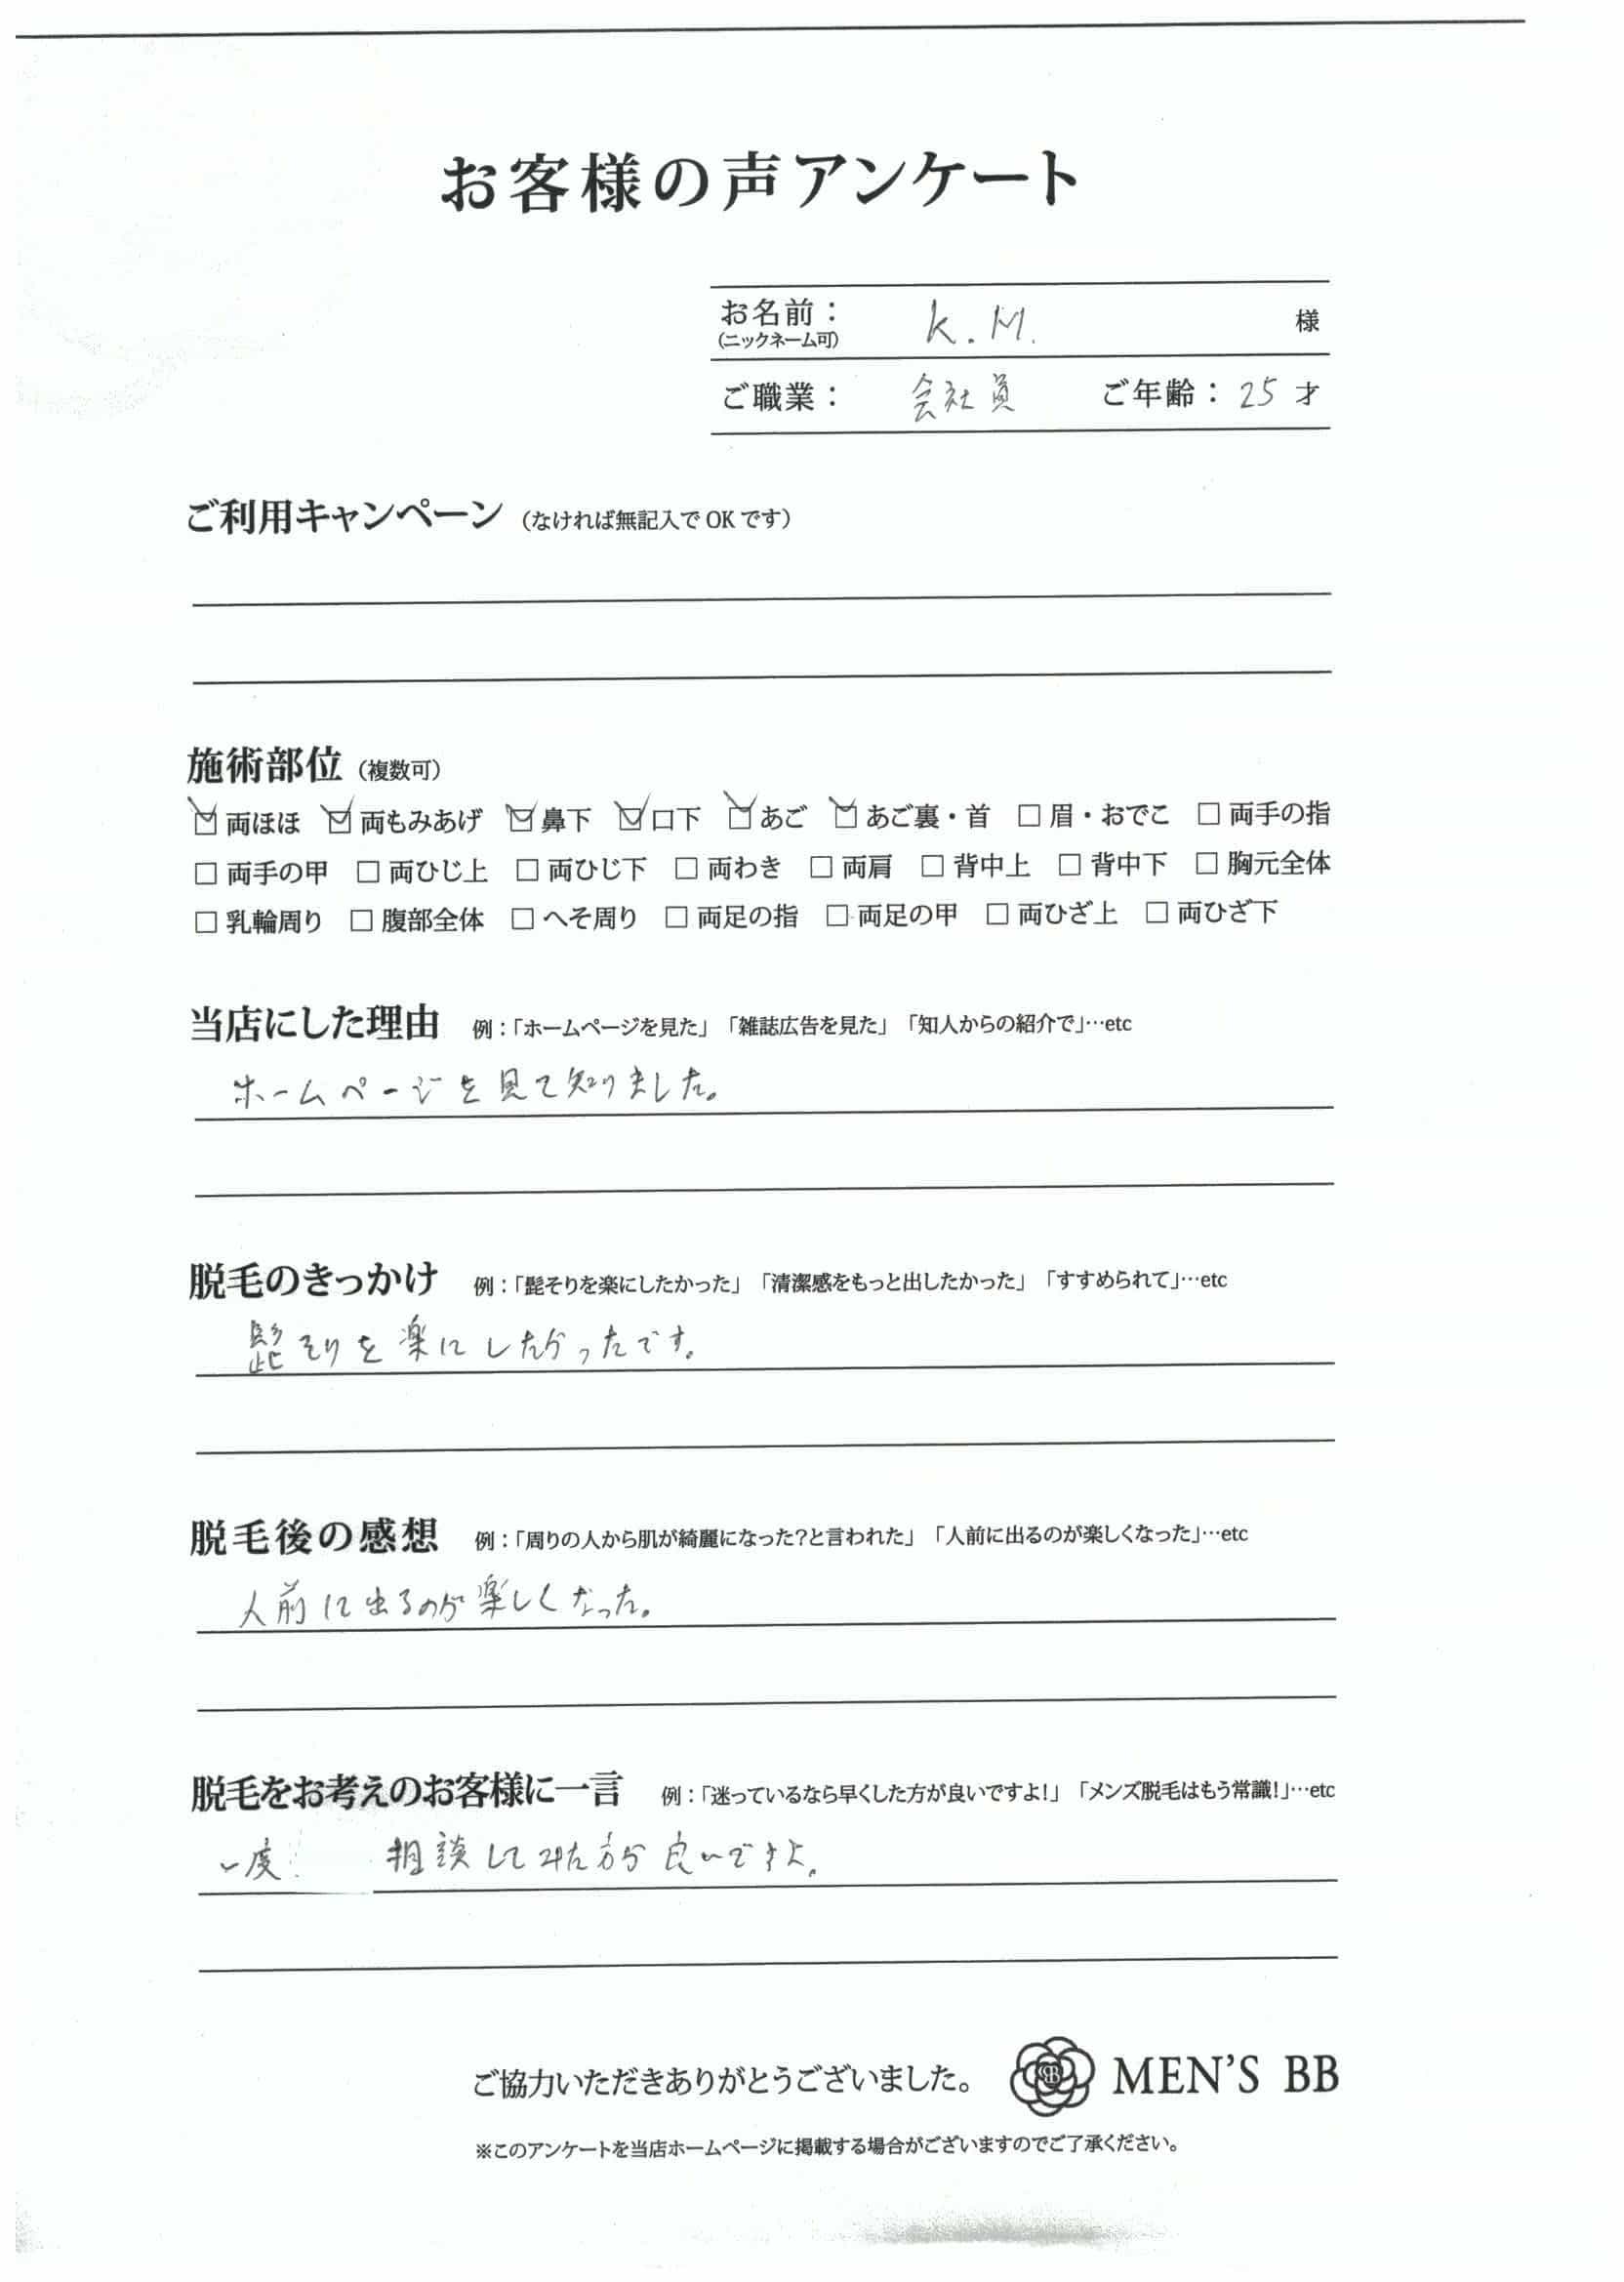 お客様の声アンケート
お名前： K.M. 様
(ニックネーム可)
ご職業： 会社員 ご年齢： 25 才
ご利用キャンペーン （なければ無記入で OK です）
施術部位 （複数可）
☑ 両ほほ ☑ 両もみあげ ☑ 鼻下 ☑ 口下 ☑ あご ☑ あご裏・首 □ 眉・おでこ □ 両手の指
□ 両手の甲 □ 両ひじ上 □ 両ひじ下 □ 両わき □ 両肩 □ 背中上 □ 背中下 □ 胸元全体
□ 乳輪周り □ 腹部全体 □ へそ周り □ 両足の指 □ 両足の甲 □ 両ひざ上 □ 両ひざ下
当店にした理由 例：「ホームページを見た」「雑誌広告を見た」「知人からの紹介で」…etc
ホームページを見て知りました。
脱毛のきっかけ 例：「髭そりを楽にしたかった」「清潔感をもっと出したかった」「すすめられて」…etc
髭そりを楽にしたかったです。
脱毛後の感想 例：「周りの人から肌が綺麗になった？と言われた」「人前に出るのが楽しくなった」…etc
人前に出るのが楽しくなった。
脱毛をお考えのお客様に一言 例：「迷っているなら早くした方が良いですよ！」「メンズ脱毛はもう常識！」…etc
一度 相談してみた方が良いですよ。
ご協力いただきありがとうございました。 MEN'S BB
※このアンケートを当店ホームページに掲載する場合がございますのでご了承ください。